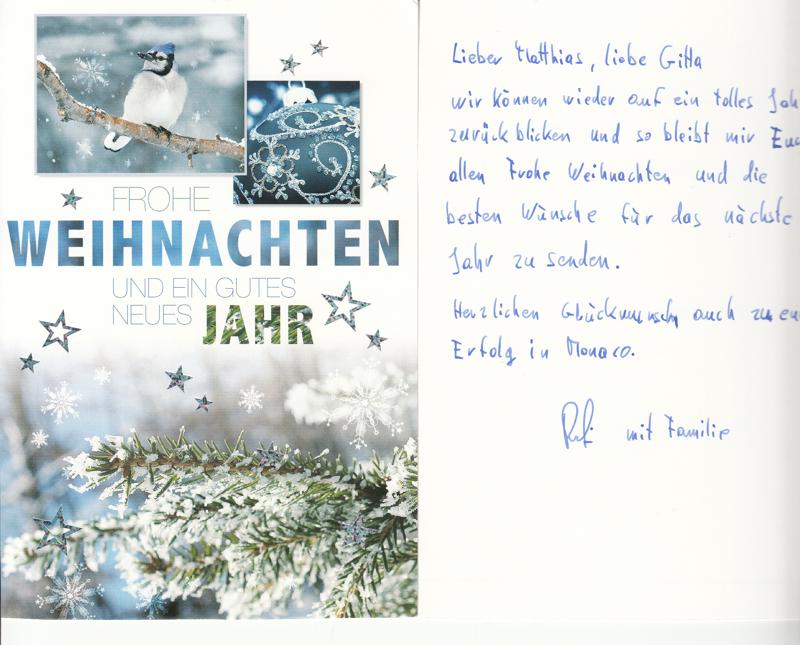 FROHE
WEIHNACHTEN
UND EIN GUTES
NEUES JAHR
Lieber Matthias, liebe Gitta
wir können wieder auf ein tolles Jah
zurück blicken und so bleibt mir Euc
allen Frohe Weihnachten und die
besten Wünsche für das nächste
Jahr zu senden.
Herzlichen Glückwunsch auch zu eu
Erfolg in Monaco.
mit Familie